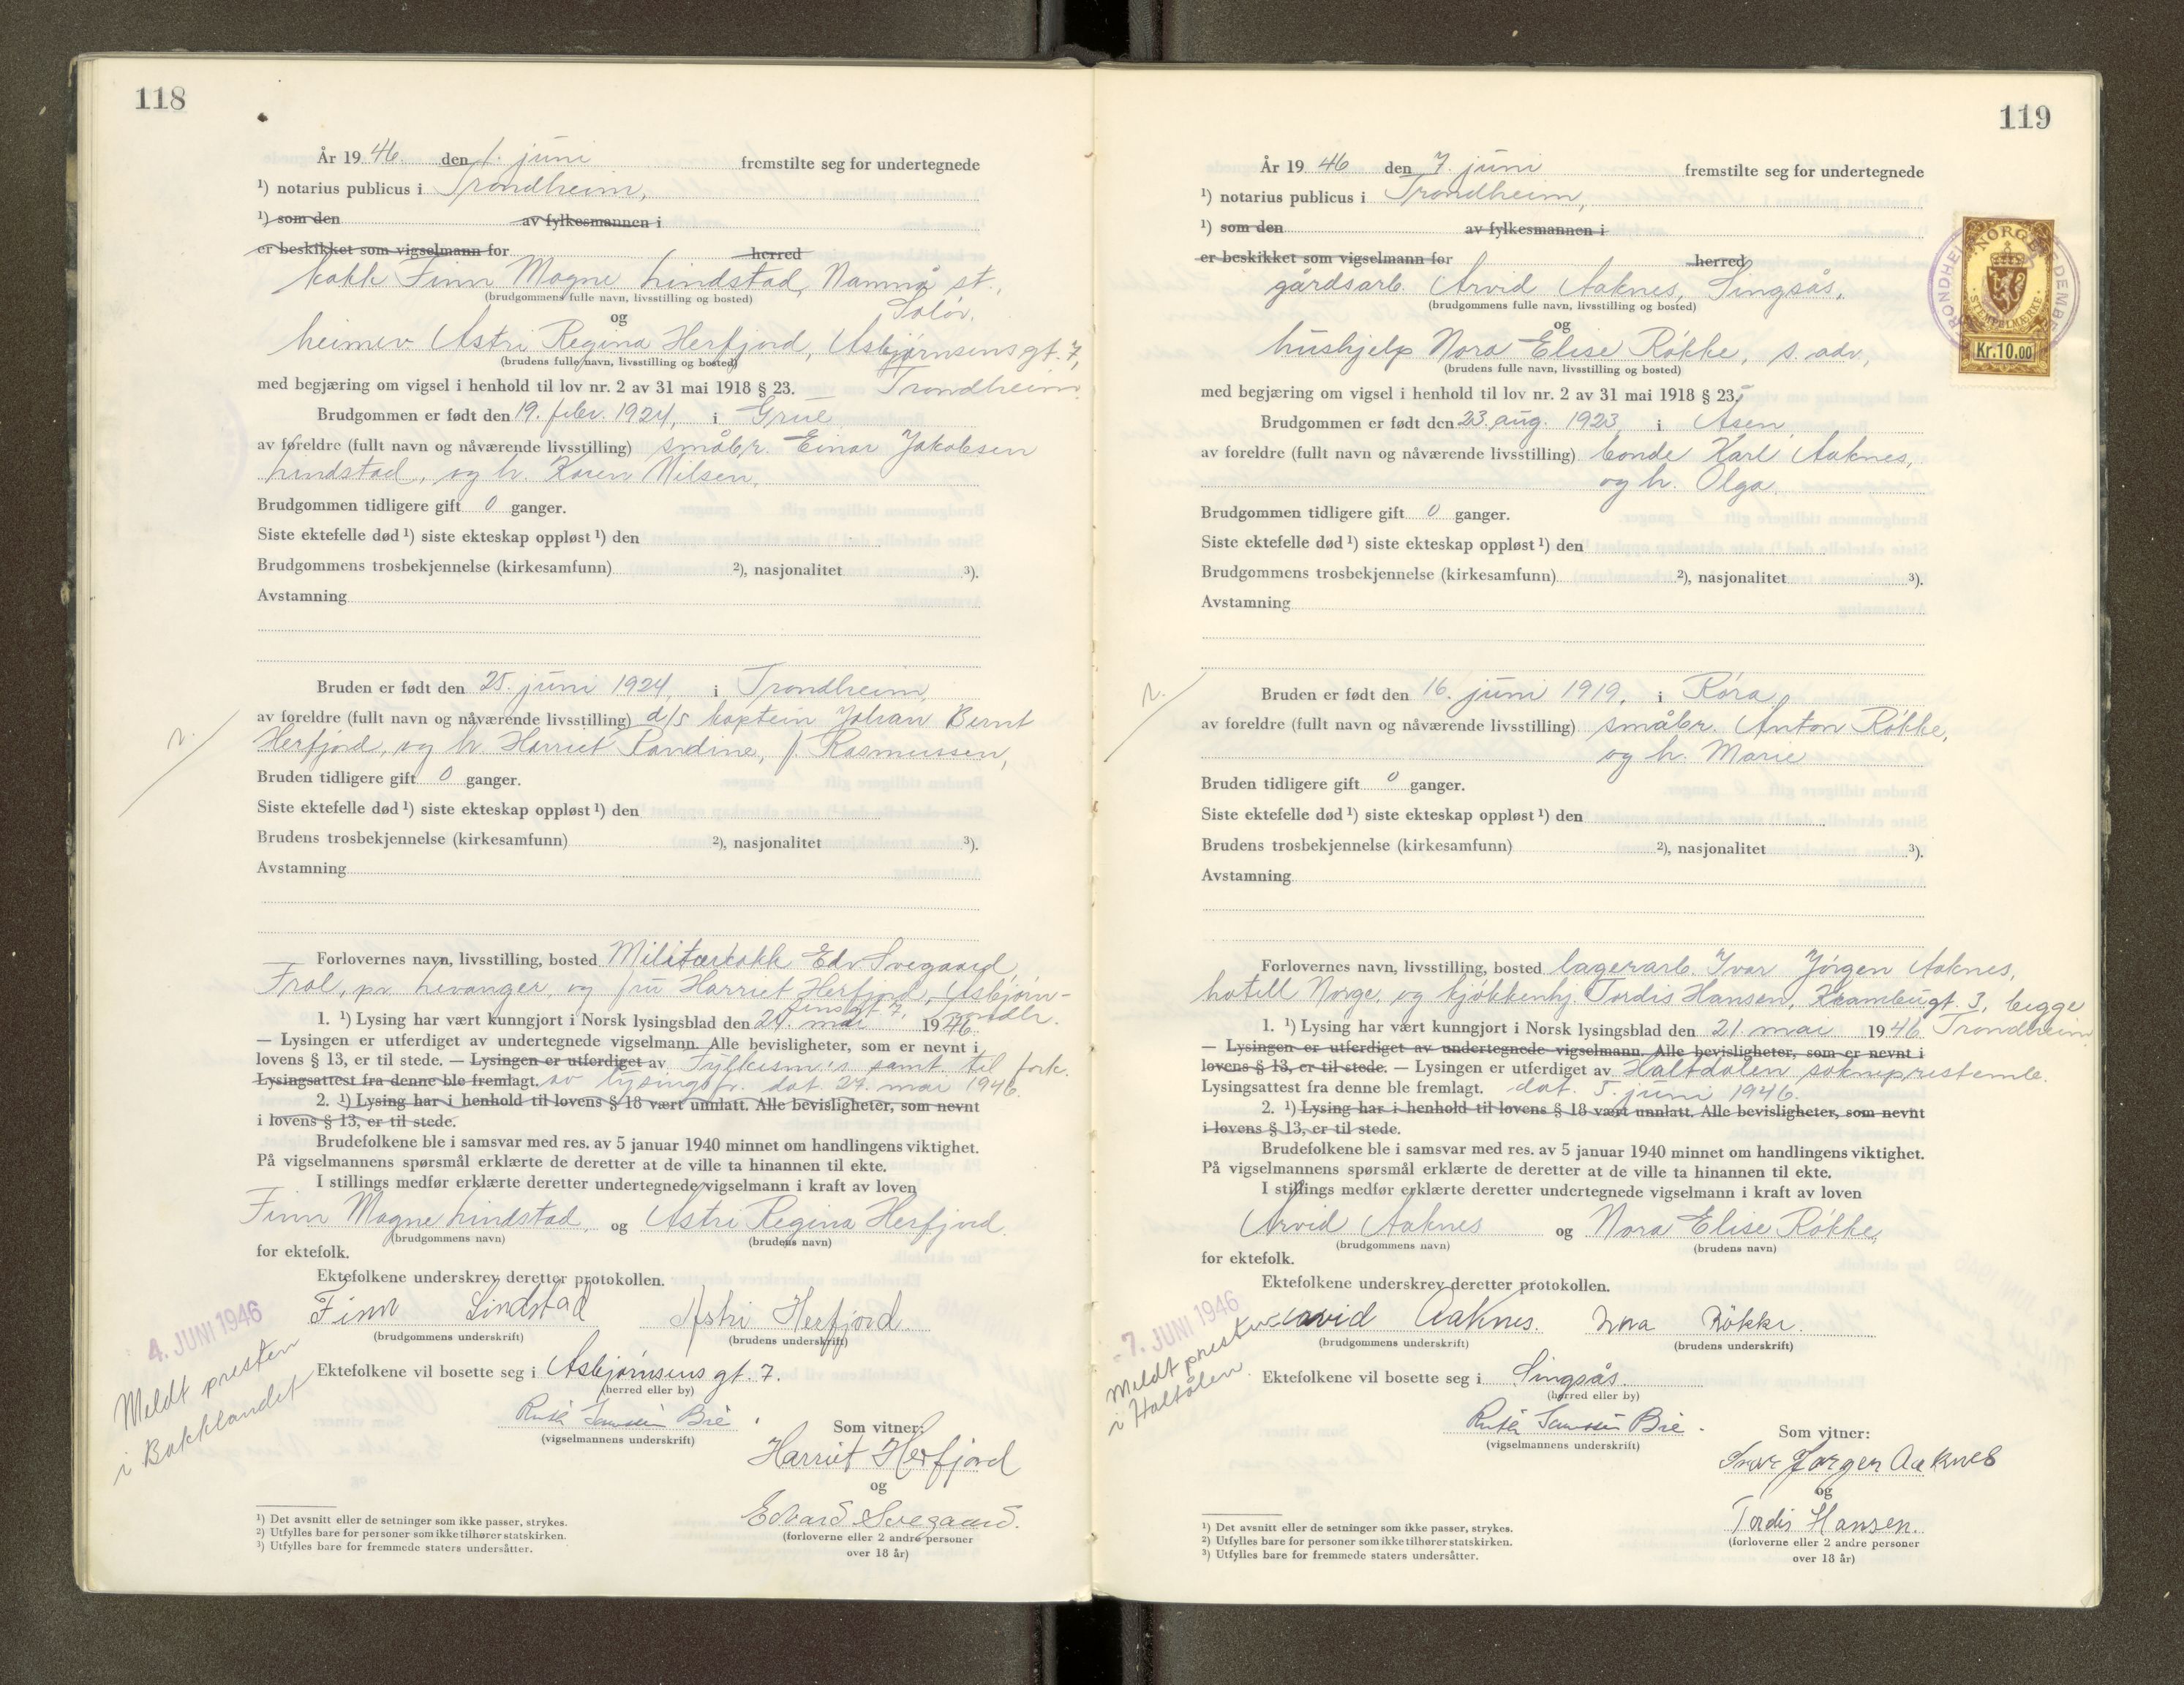 118
År 1946. den 1. juni fremstilte seg for undertegnede
¹) notarius publicus i Trondheim,
¹) som den av fylkesmannen i
er beskikket som vigselmann for herred
kokk Finn Magne Lindstad, Namnå st.,
(brudgommens fulle navn, livsstilling og bosted)
Solør.
og
heimev. Astri Regina Herfjord, Asbjørnsensgt. 7,
(brudens fulle navn, livsstilling og bosted)
med begjæring om vigsel i henhold til lov nr. 2 av 31 mai 1918 § 23. Trondheim.
Brudgommen er født den 19. febr. 1924, i Grue
av foreldre (fullt navn og nåværende livsstilling) småbr. Einar Jakobsen
Lindstad, og h. Karen Nilsen.
Brudgommen tidligere gift 0 ganger.
Siste ektefelle død ¹) siste ekteskap oppløst ¹) den
Brudgommens trosbekjennelse (kirkesamfunn) ²), nasjonalitet ³).
Avstamning
Bruden er født den 25. juni 1924, i Trondheim,
av foreldre (fullt navn og nåværende livsstilling) d/s kaptein Johan Bernt
Herfjord, og h. Harriet Pandine, f. Rasmussen,
Bruden tidligere gift 0 ganger.
Siste ektefelle død ¹) siste ekteskap oppløst ¹) den
Brudens trosbekjennelse (kirkesamfunn) ²), nasjonalitet ³).
Avstamning
Forlovernes navn, livsstilling, bosted Militærkokk Edv Svegaard,
Frol, pr. Levanger, og fru Harriet Herfjord, Asbjørn-
sensgt. 7, Trondh.
1. ¹) Lysing har vært kunngjort i Norsk lysingsblad den 24. mai 1946.
— Lysingen er utferdiget av undertegnede vigselmann. Alle bevisligheter, som er nevnt i
lovens § 13, er til stede. — Lysingen er utferdiget av Fylkesm's samt. til fork.
Lysingsattest fra denne ble fremlagt. av lysingsfr. dat. 27. mai 1946.
2. ¹) Lysing har i henhold til lovens § 18 vært unnlatt. Alle bevisligheter, som nevnt
i lovens § 13, er til stede.
Brudefolkene ble i samsvar med res. av 5 januar 1940 minnet om handlingens viktighet.
På vigselmannens spørsmål erklærte de deretter at de ville ta hinannen til ekte.
I stillings medfør erklærte deretter undertegnede vigselmann i kraft av loven
Finn Magne Lindstad, og Astri Regina Herfjord.
(brudgommens navn) (brudens navn)
for ektefolk.
Ektefolkene underskrev deretter protokollen.
Finn Lindstad Astri Herfjord.
(brudgommens underskrift) (brudens underskrift)
4. JUNI 1946
Meldt presten
i Bakklandet
Ektefolkene vil bosette seg i Asbjørnsens gt. 7.
(herred eller by)
(vigselmannens underskrift)
Som vitner:
Harriet Herfjord
og
Edvard Svegaard.
(forloverne eller 2 andre personer
over 18 år)
¹) Det avsnitt eller de setninger som ikke passer, strykes.
²) Utfylles bare for personer som ikke tilhører statskirken.
³) Utfylles bare for fremmede staters undersåtter.
119
År 1946 den 7. juni fremstilte seg for undertegnede
¹) notarius publicus i Trondheim,
¹) som den av fylkesmannen i
er beskikket som vigselmann for herred
gårdsarb. Arvid Aaknes, Singsås,
(brudgommens fulle navn, livsstilling og bosted)
og
hushjelp Nora Elise Røkke, s. adr,
(brudens fulle navn, livsstilling og bosted)
med begjæring om vigsel i henhold til lov nr. 2 av 31 mai 1918 § 23.
Brudgommen er født den 23. aug. 1923, i Åsen,
av foreldre (fullt navn og nåværende livsstilling) bonde Karl Aaknes,
og h. Olga.
Brudgommen tidligere gift 0 ganger.
Siste ektefelle død ¹) siste ekteskap oppløst ¹) den
Brudgommens trosbekjennelse (kirkesamfunn) ²), nasjonalitet ³).
Avstamning
Bruden er født den 16. juni 1919, i Røra,
av foreldre (fullt navn og nåværende livsstilling) småbr. Anton Røkke,
og h. Marie
Bruden tidligere gift 0 ganger.
Siste ektefelle død ¹) siste ekteskap oppløst ¹) den
Brudens trosbekjennelse (kirkesamfunn) ²), nasjonalitet ³).
Avstamning
Forlovernes navn, livsstilling, bosted lagerarb. Ivar Jørgen Aaknes,
hotell Norge, og kjøkkenhj. Tordis Hansen, Krambugt. 3, begge
1. ¹) Lysing har vært kunngjort i Norsk lysingsblad den 21. mai 1946 Trondheim
— Lysingen er utferdiget av undertegnede vigselmann. Alle bevisligheter, som er nevnt i
lovens § 13, er til stede. — Lysingen er utferdiget av Haltdalen sokneprestemb.
Lysingsattest fra denne ble fremlagt. dat. 5. juni 1946.
2. ¹) Lysing har i henhold til lovens § 18 vært unnlatt. Alle bevisligheter, som nevnt
i lovens § 13, er til stede.
Brudefolkene ble i samsvar med res. av 5 januar 1940 minnet om handlingens viktighet.
På vigselmannens spørsmål erklærte de deretter at de ville ta hinannen til ekte.
I stillings medfør erklærte deretter undertegnede vigselmann i kraft av loven
Arvid Aaknes og Nora Elise Røkke,
(brudgommens navn) (brudens navn)
for ektefolk.
Ektefolkene underskrev deretter protokollen.
Arvid Aaknes. Nora Røkke.
(brudgommens underskrift) (brudens underskrift)
-7. JUNI 1946
Meldt presten
i Haltdalen.
Ektefolkene vil bosette seg i Singsås.
(herred eller by)
(vigselmannens underskrift)
Som vitner:
Ivar Jørgen Aaknes
og
Tordis Hansen.
(forloverne eller 2 andre personer
over 18 år)
¹) Det avsnitt eller de setninger som ikke passer, strykes.
²) Utfylles bare for personer som ikke tilhører statskirken.
³) Utfylles bare for fremmede staters undersåtter.
NORGE
STEMPELMERKE
Kr.10.00